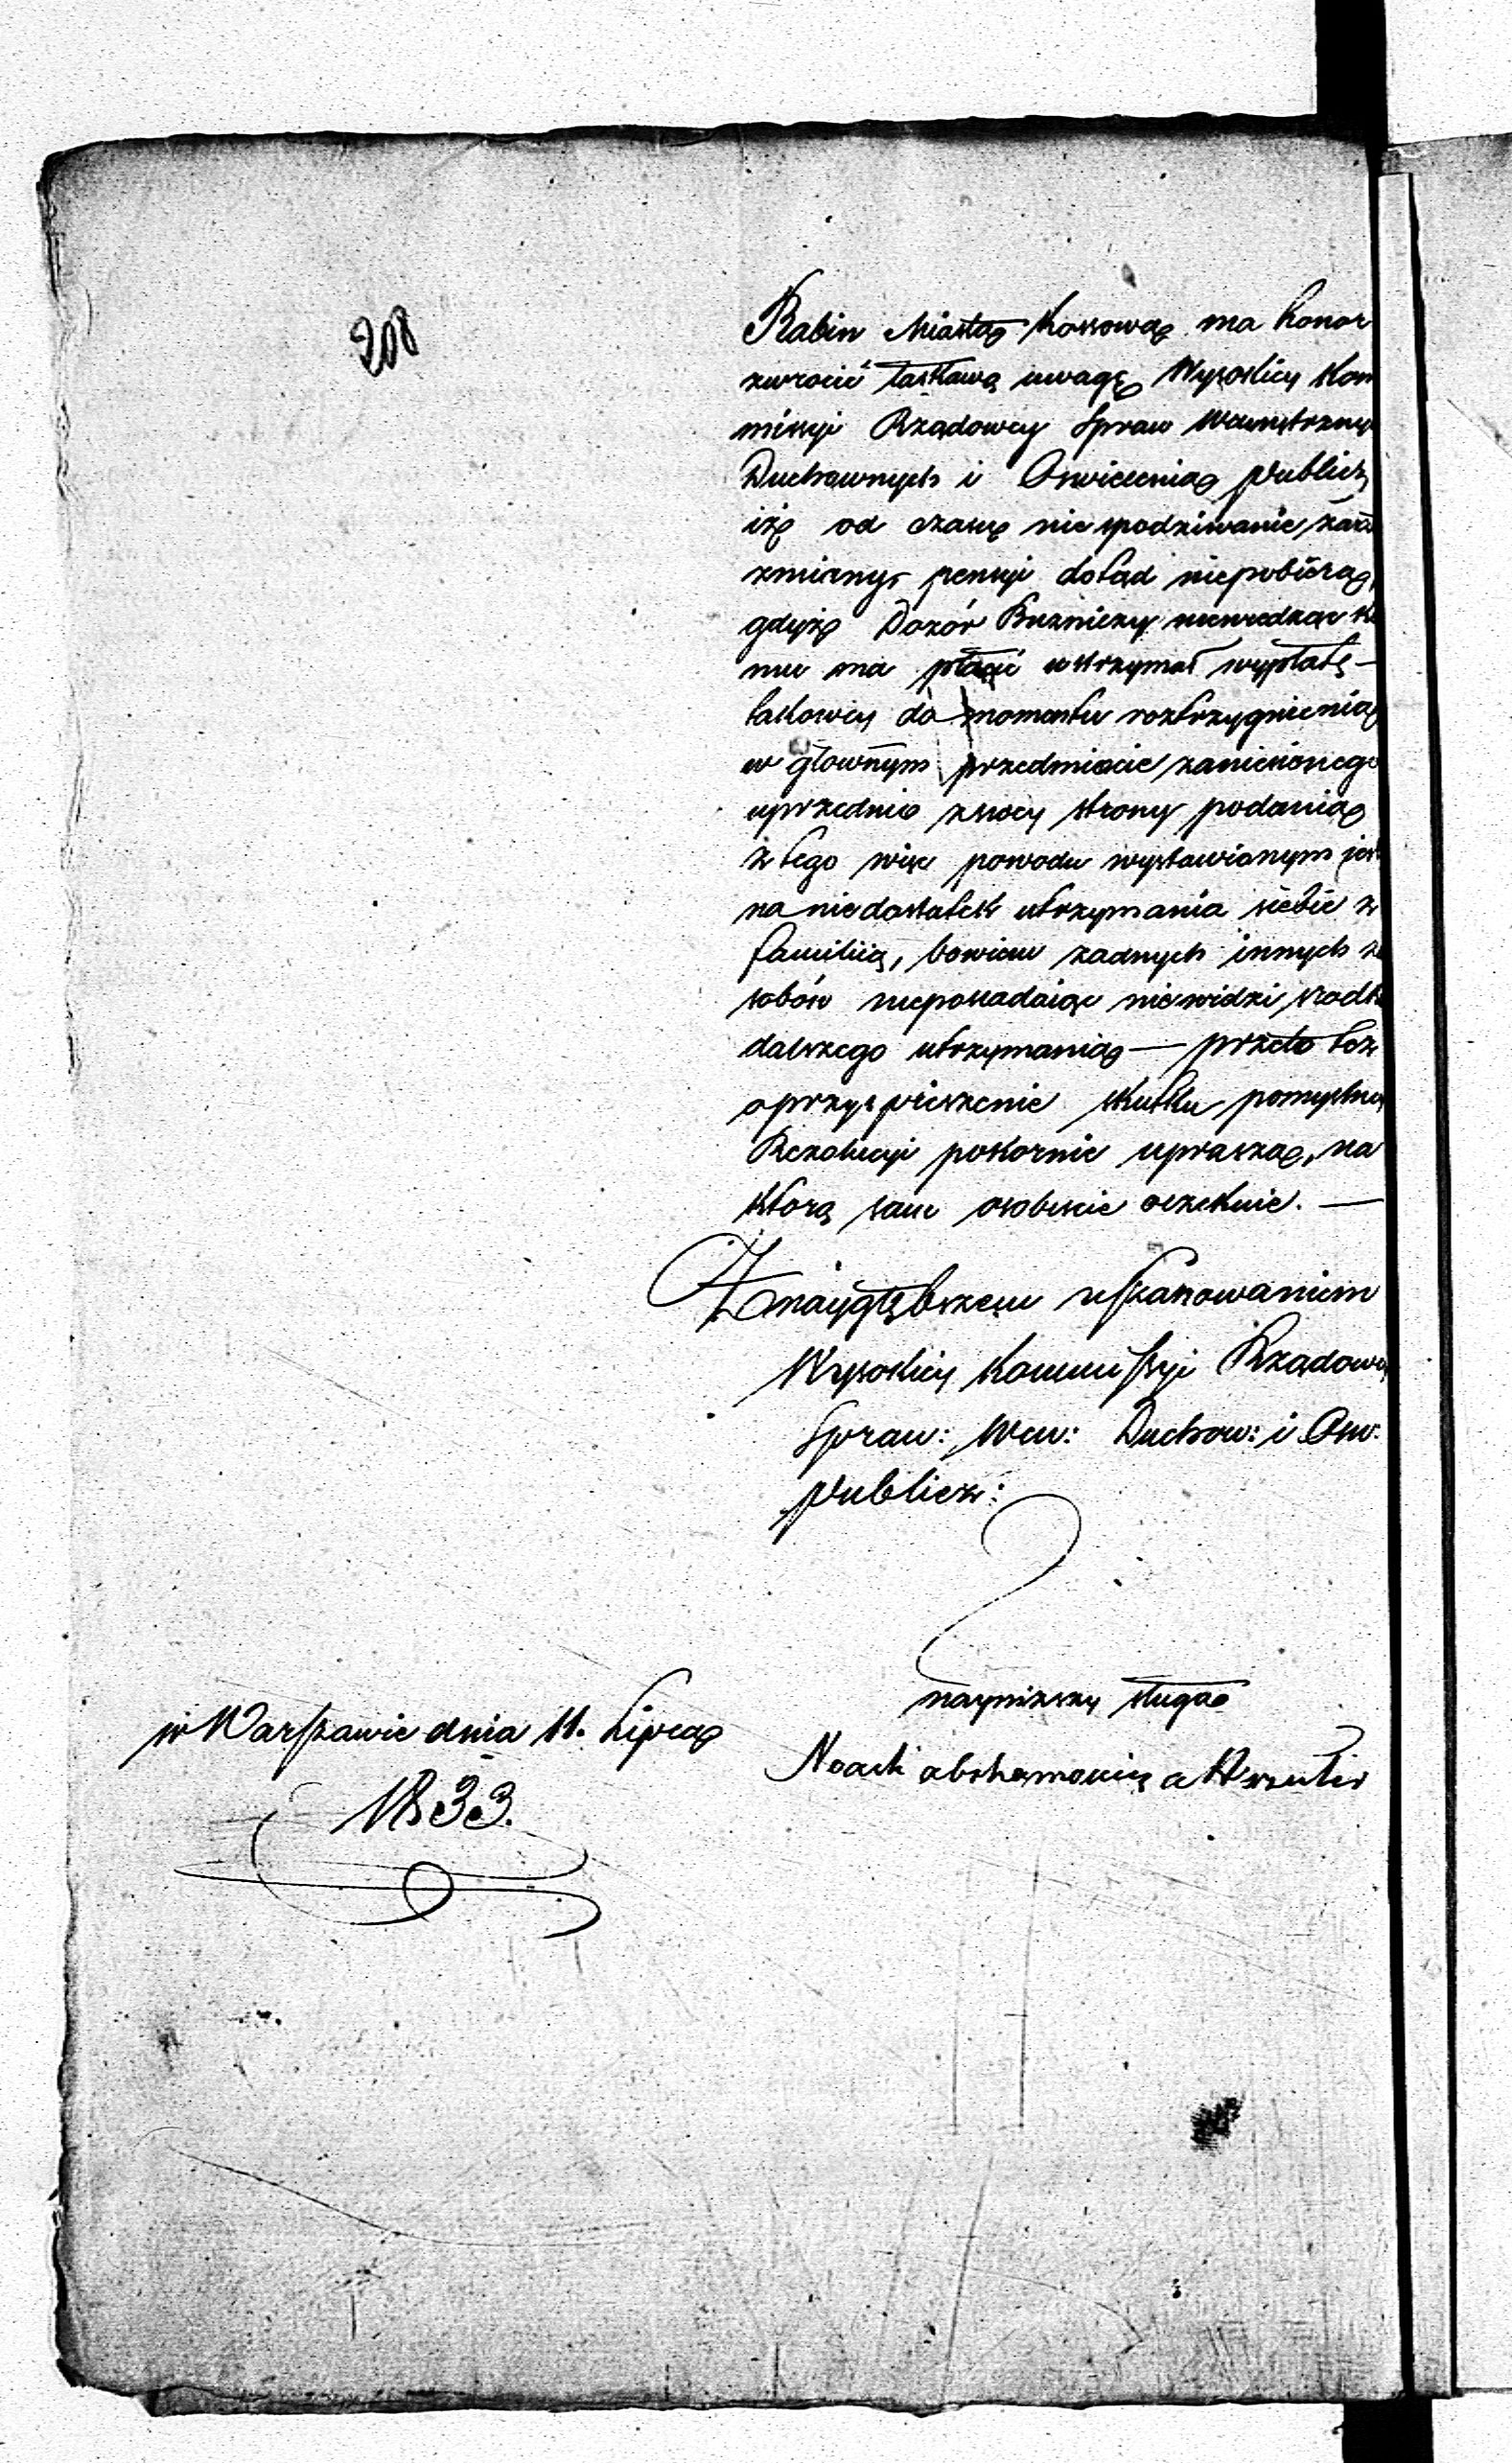 208
Rabin Miasta Kossowa ma honor
zwrocić łaskawą uwagę Wysokiey Kom
missyi Rządowey Spraw Wewnętrznych
Duchownych i Oswiecenia Publicz
iż od czasu niespodziwanie
zmiany, pensyi dotąd niepobiera,
gdyż Dozór Buzniczy niewiedząc ko
mu ma płacić wstrzymał wypłatę —
takowey do momentu roztrzygnienia
w głownym przedmiocie zaniesionego
uprzednio zswey strony podania
z tego więc powodu wystawionym jest
na niedostatek utrzymania siebie z
familiią, bowiem zadnych innych za
sobów nieposiadaiąc niewidzi srodka
dalszego utrzymania — przeto tez
o przyspieszenie skutku pomyslney
Rezolucyi pokornie uprasza, na
ktorą sam osobiscie oczekuie. —
Z naygłębszem uszanowaniem
Wysokiey Kommissyi Rządowey
Spraw: Wew: Duchow: i Osw:
Publicz:
nayniższy sługa
w Warszawie dnia 11. Lipca
Noach
1833.